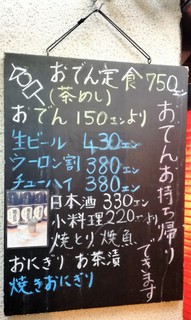 おでん定食 750エン
(茶めし)
おでん 150エンより
生ビール 430エン
ウーロン割 380エン
チューハイ 380エン
日本酒 330エン
小料理 220エンより
焼とり 焼魚
おにぎり お茶漬
焼きおにぎり
おでんお持ち帰り
できます